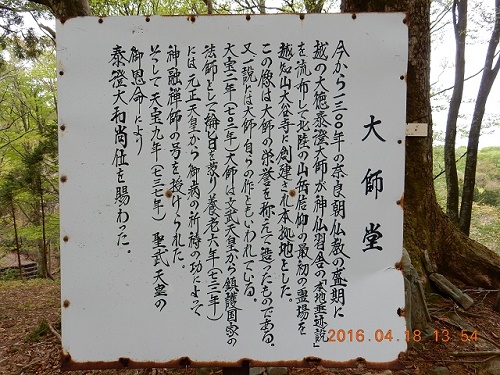 大師堂
今から一三〇〇年の奈良朝仏教の盛期に
越の大徳泰澄大師が神仏習合の「本地垂迹説」
を流布して北陸の山岳信仰の最初の霊場を
越知山大谷寺に創建され本拠地とした。
この像は大師の栄誉を称えて造ったものである。
又一説には大師自らの作ともいわれている。
大宝二年(七〇二年)大師は文武天皇から鎮護国家の
法師として綸旨を蒙り養老六年(七二二年)
には元正天皇から御病の祈祷の功によって
神融禅師の号を授けられた
そして天宝九年(七三七年)聖武天皇の
御恩命により
泰澄大和尚位を賜わった。
2016.04.18 13:54